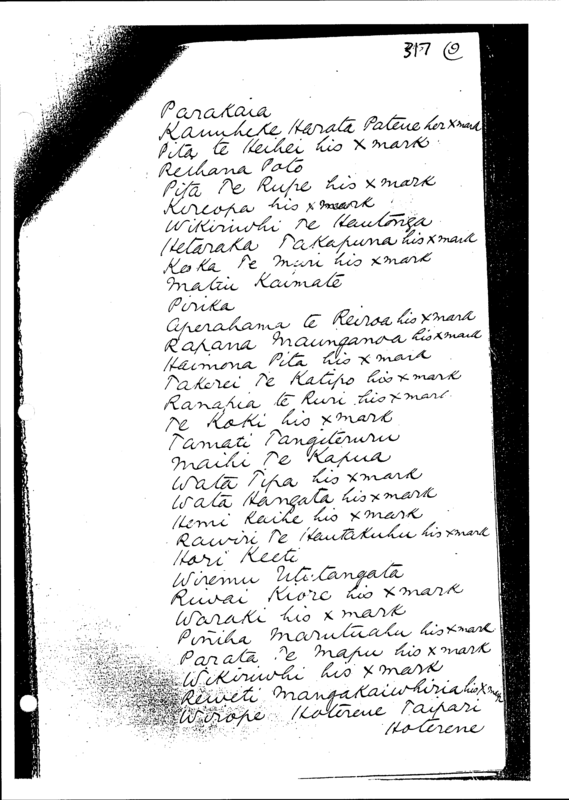 317 9
Parakaia
Kauwheke Harata Patene her x mark
Pita te Heihei his x mark
Reihana Poto
Pita Te Rupe his x mark
Kireopa his x mark
Wikiriwhi Te Hautonga
Hetaraka Takapuna his x mark
Keska Te Muri his x mark
Matiu Kaimate
Pirika
Aperahama te Reiroa his x mark
Rapana Maunganoa his x mark
Haimona Pita his x mark
Takerei Te Katipo his x mark
Ranapia te Ruri his x mark
Te Koki his x mark
Tamati Tangiteruru
Maihi Te Kapua
Wata Tipa his x mark
Wata Hangata his x mark
Hemi Kaihe his x mark
Rawiri Te Hautakuhu his x mark
Hori Keeti
Wiremu Uti-tangata
Riwai Kiore his x mark
Waraki his x mark
Piniha Marutuahu his x mark
Parata Te Mapu his x mark
Wikiriwhi his x mark
Reweti Mangakaiwhiria his x mark
Wirope Hoterene Taipari
Hoterene